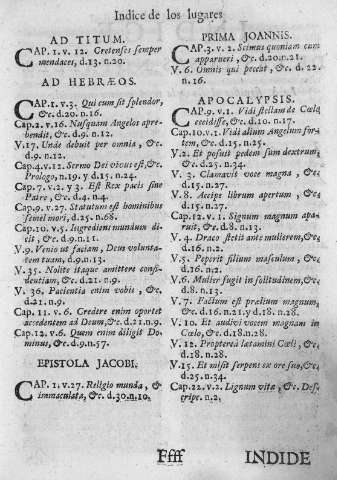 Indice de los lugares
AD TITUM.
CAP. 1. v. 12. Cretenses semper
mendaces, d.13. n.20.
AD HEBRÆOS.
CAP.1. v.3. Qui cum sit splendor,
&c. d.20. n.16.
Cap.2. v.16. Nusquam Angelos apre-
hendit, &c. d.9. n.12.
V.17. Unde debuit per omnia, &c.
d.9. n.12.
Cap.4. v.12. Sermo Dei vivus est, &c.
Prologo, n.19. y d.15. n.24.
Cap. 7. v.2. y 3. Est Rex pacis sine
Patre, &c. d.4. n.4.
Cap.9. v.27. Statutum est hominibus
semel mori, d.25. n.68.
Cap.10. v.5. Ingrediens mundum di-
cit, &c. d.9. n.11.
V.9. Venio ut faciam, Deus volunta-
tem tuam, d.9. n.13.
V.35. Nolite itaque amittere confi-
dentiam, &c. d.21. n.9.
V. 36. Pacientia enim vobis, &c.
d.21. n.9.
Cap. 11. v.6. Credere enim oportet
accedentem ad Deum, &c. d.21. n.9.
Cap.12. v.6. Quem enim diligit Do-
minus, &c. d.9. n.57.
EPISTOLA JACOBI.
CAP. 1. v.27. Religio munda, &
immaculata, &c. d.30. n.10.
PRIMA JOANNIS.
CAP.3. v.2. Scimus quoniam cum
apparueri, &c. d.20. n.21.
V.6. Omnis qui peccat, &c. d. 22.
n.16.
APOCALYPSIS.
CAP.9. v.1. Vidi stellam de Cœlo
cecidisse, &c. d.10. n.17.
Cap.10. v.1. Vidi alium Angelum for-
tem, &c. d.15. n.25.
V.2. Et posuit pedem suum dextrum,
&c. d.25. n.34.
V. 3. Clamavit voce magna, &c.
d.15. n.27.
V.8. Accipe librum apertum, &c.
d.15. n.27.
Cap.12. v.1. Signum magnum apa-
ruit, &c. d.8. n.13.
V.4. Draco stetit ante mulierem, &c.
d.16. n.2.
V.5. Peperit filium masculum, &c.
d.16. n.2.
V.6. Mulier fugit in solitudinem, &c.
d.8. n.13.
V.7. Factum est prælium magnum,
&c. d.16. n.21. y d.18. n.28.
V. 10. Et audivi vocem magnam in
Cœlo, &c. d.18. n.28.
V.12. Propterea lætamini Cœli, &c.
d.18. n.28.
V.15. Et misit serpens ex ore suo, &c.
d.25. n.34.
Cap.22. v.2. Lignum vitæ, &c. Des-
cript. n.2.
Ffff
INDIDE